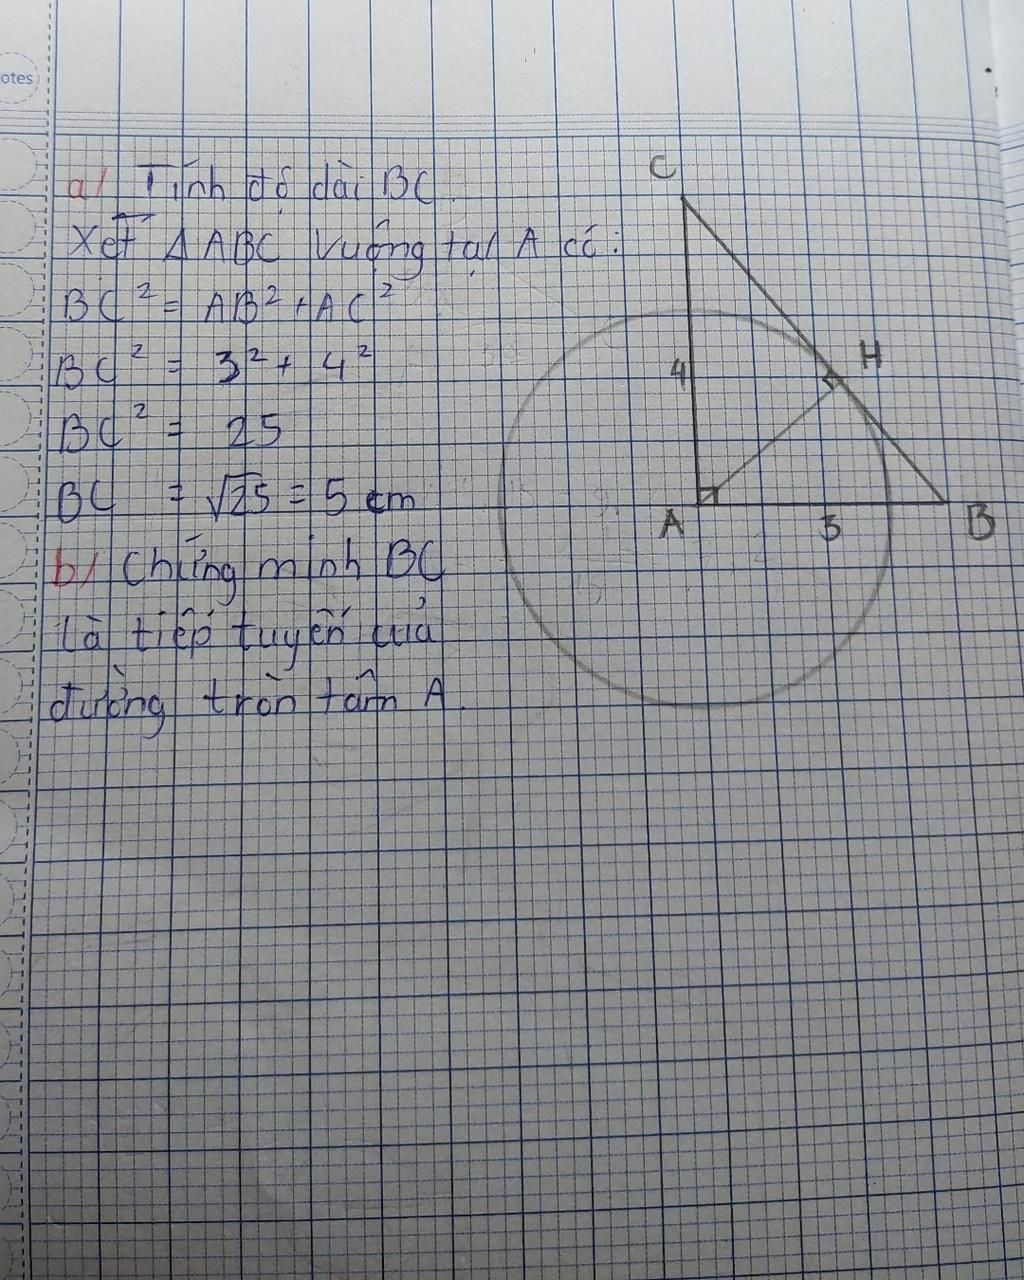 otes
a/ Tính độ dài BC.
Xét Δ ABC vuông tại A có:
BC² = AB² + AC²
BC² = 3² + 4²
BC² = 25
BC = √25 = 5 cm
b/ Chứng minh BC
là tiếp tuyến của
đường tròn tâm A.
C
H
4
A
3
B